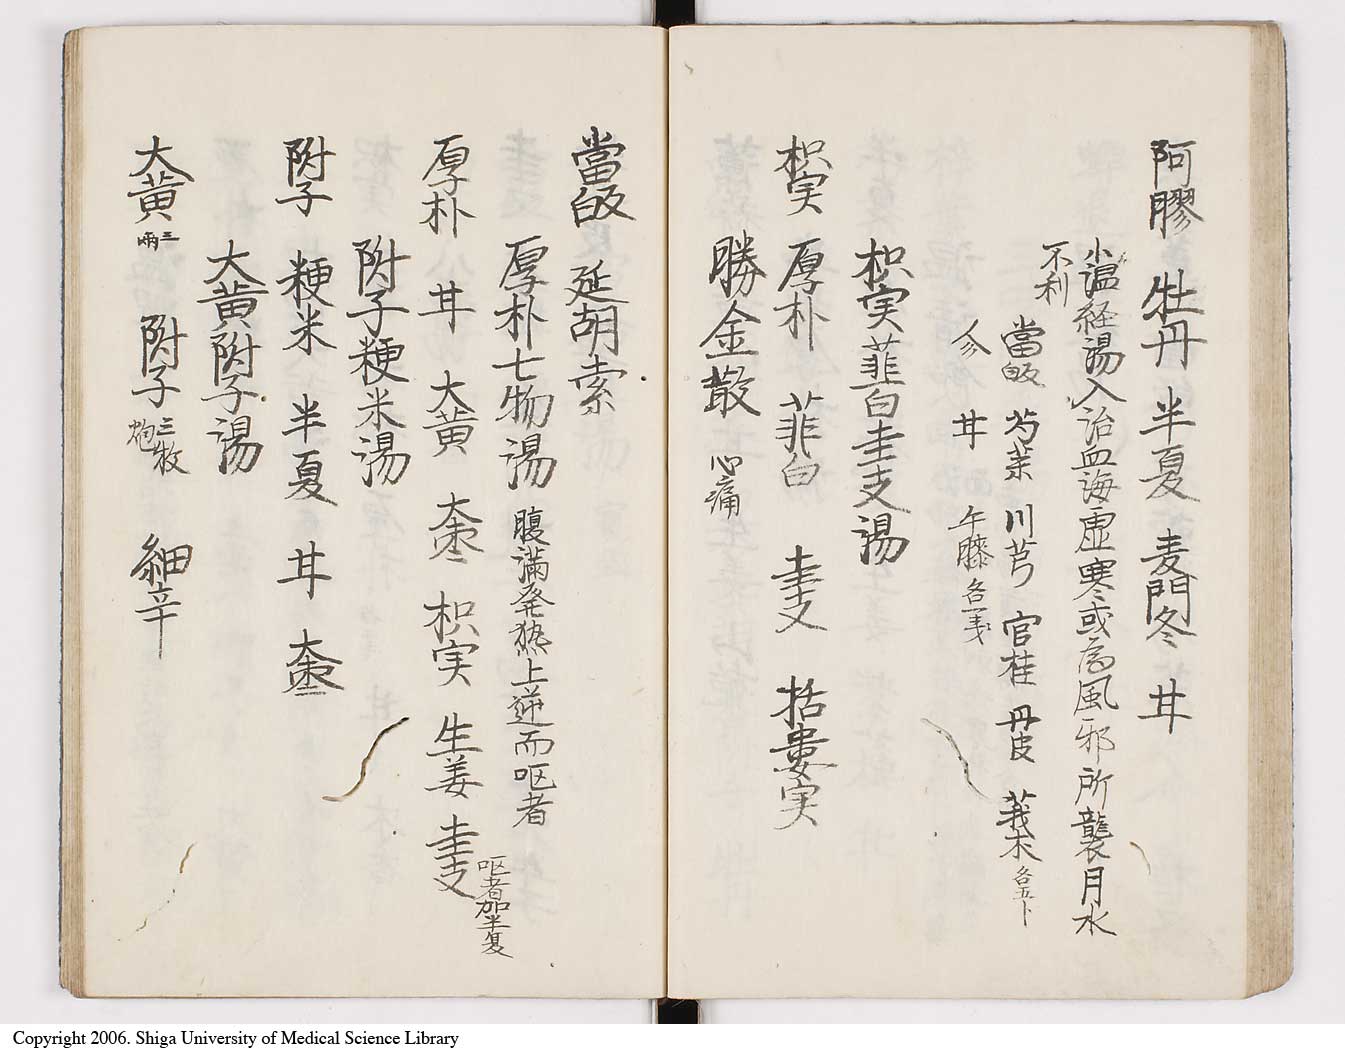 阿膠 牡丹 半夏 麦門冬 甘
小温経湯入治血海虚寒或為風邪所襲月水
不利
當皈 芍薬 川芎 官桂 丹皮 莪朮 各五卜
参 甘 午膝 各一戔
枳実薤白圭支湯
枳実 厚朴 韮白 圭支 括蔞実
勝金散 心痛
當皈 延胡索
厚朴七物湯 腹満発熱上逆而呕者
厚朴 甘 大黄 大枣 枳実 生姜 圭支 呕者加半夏
附子粳米湯
附子 粳米 半夏 甘 大枣
大黄附子湯
大黄 三両 附子 三枚炮 細辛
Copyright 2006. Shiga University of Medical Science Library